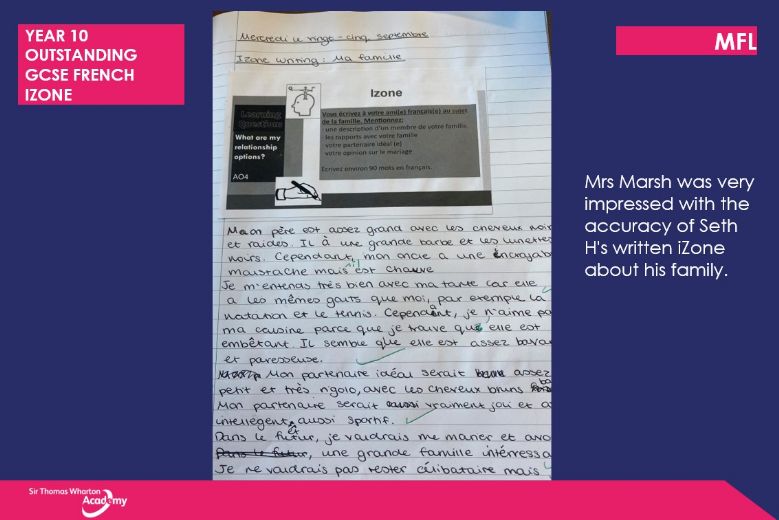 YEAR 10
OUTSTANDING
GCSE FRENCH
IZONE
MFL
Mercredi le vingt-cinq septembre
Izone writing: Ma famille
Izone
Learning
Question:
What are my
relationship
options?
AO4
Vous écrivez à votre ami(e) français(e) au sujet
de la famille. Mentionnez:
- une description d'un membre de votre famille.
- les rapports avec votre famille
- votre partenaire idéal (e)
- votre opinion sur le mariage
Ecrivez environ 90 mots en français.
Mon père est assez grand avec les cheveux noir
et raides. Il à une grande barbe et les lunettes
noirs. Cependant, mon oncle a une incroyab
moustache mais il est chauve
Je m'entends très bien avec ma tante car elle
a les mêmes gouts que moi, par exemple la
natation et le tennis. Cependant, je n'aime pa
ma cousine parce que je trouve que elle est
embêtant. Il semble que elle est assez bava
et paresseuse.
Mon partenaire idéal serait assez
petit et très rigolo, avec les cheveux bruns
Mon partenaire serait aussi vraiment joli et a
intellegent et aussi sportif.
Dans le futur, je voudrais me marier et avo
Dans le futur, une grande famille intérressa
Je ne voudrais pas rester célibataire mais
Mrs Marsh was very
impressed with the
accuracy of Seth
H's written iZone
about his family.
Sir Thomas Wharton
Academy